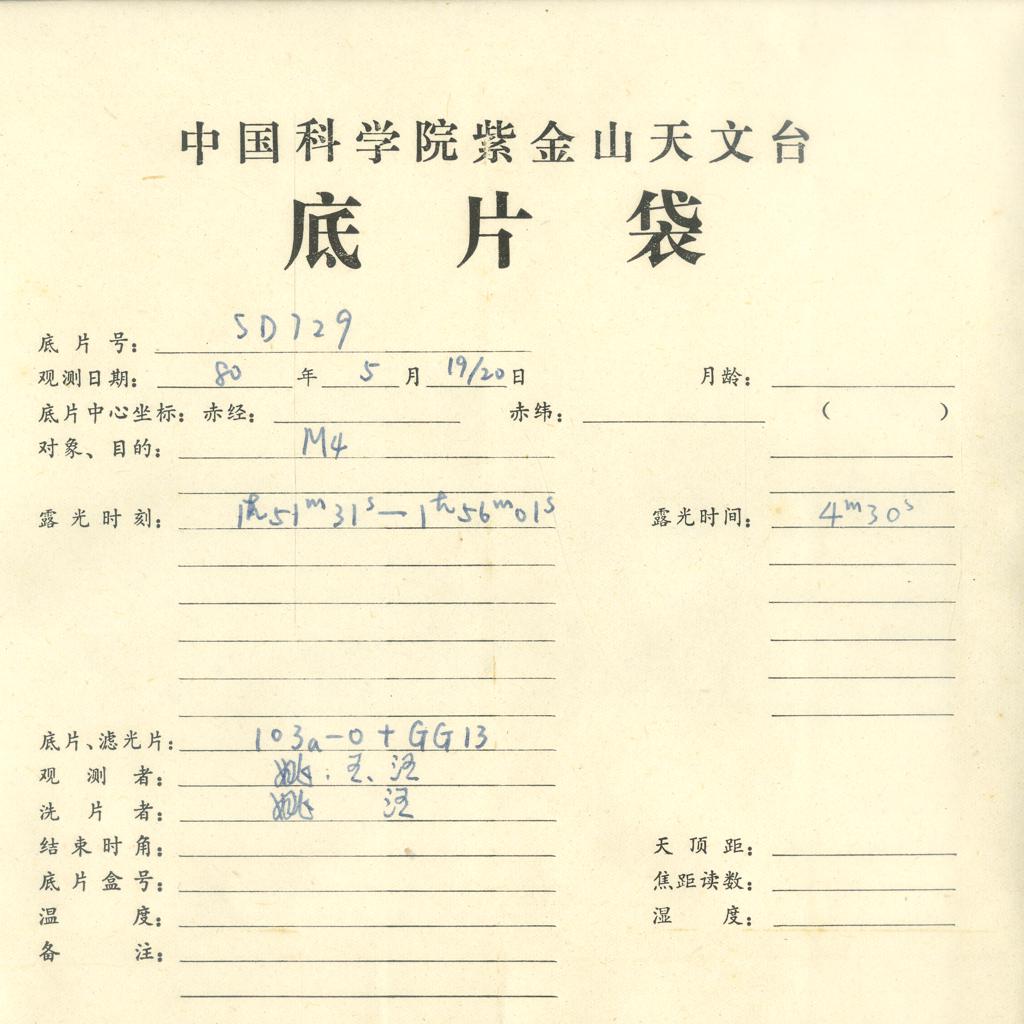 中国科学院紫金山天文台
底片袋
底片号: SD729
观测日期: 80年5月19/20日 月龄:
底片中心坐标: 赤经: 赤纬: ( )
对象、目的: M4
露光时刻: 1h51m31s—1h56m01s 露光时间: 4m30s
底片、滤光片: 103a-0+GG13
观测者: 姚、王、汪
洗片者: 姚 汪
结束时角: 天顶距:
底片盒号: 焦距读数:
温度: 湿度:
备注: